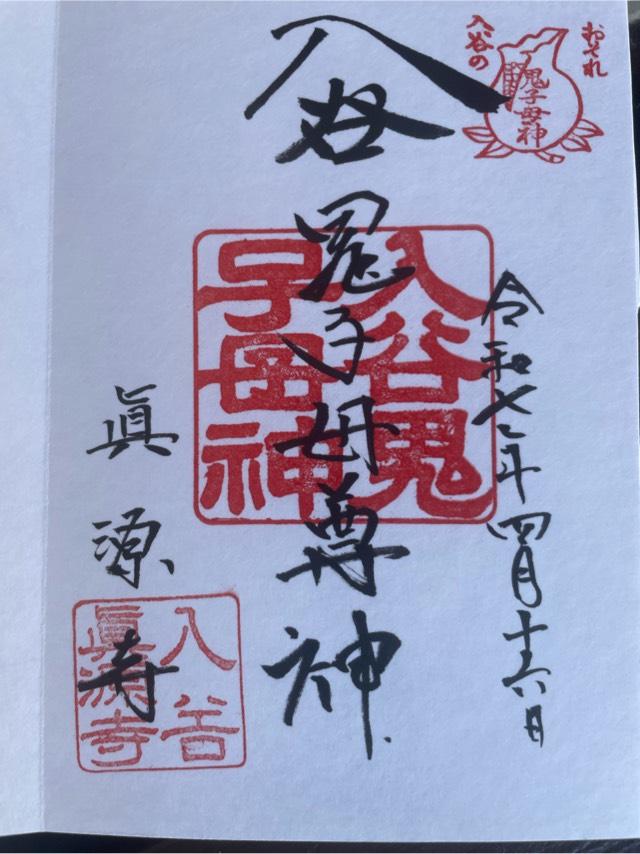 おそれ
入谷の
鬼子母神
令和七年四月十六日
入谷鬼子母尊神
入谷鬼
子母神
眞源寺
入谷
眞源寺